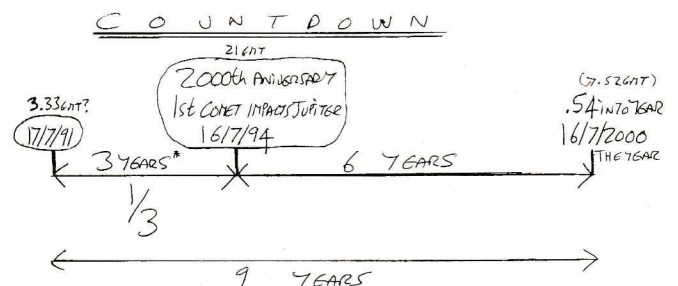 COUNTDOWN
21GMT
2000th ANIVERSARY
1st COMET IMPACTS JUPITER
16/7/94
3.33GMT?
17/7/91
(7.52GMT)
.54 INTO YEAR
16/7/2000
THE YEAR
3 YEARS*
6 YEARS
1/3
9 YEARS